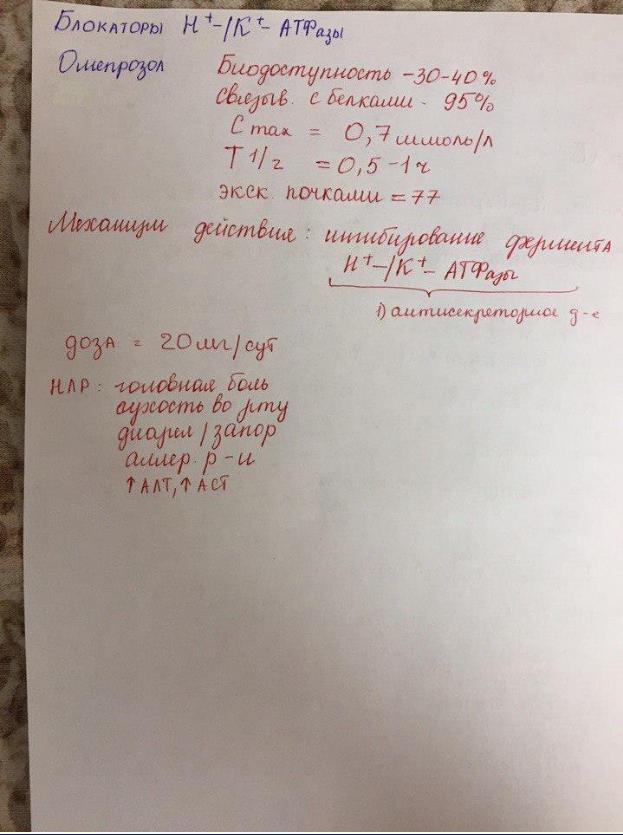 Блокаторы H⁺-/K⁺- АТФазы
Омепрозол
Биодоступность - 30-40%
Связыв. с белками - 95%
C max = 0,7 ммоль/л
T 1/2 = 0,5-1ч
экск. почками = 77
Механизм действия: ингибирование фермента
H⁺-/K⁺- АТФазы
1) антисекреторное д-е
доза = 20мг/сут
НЛР: головная боль
сухость во рту
диарея/запор
аллер. р-и
↑АЛТ, ↑АСТ